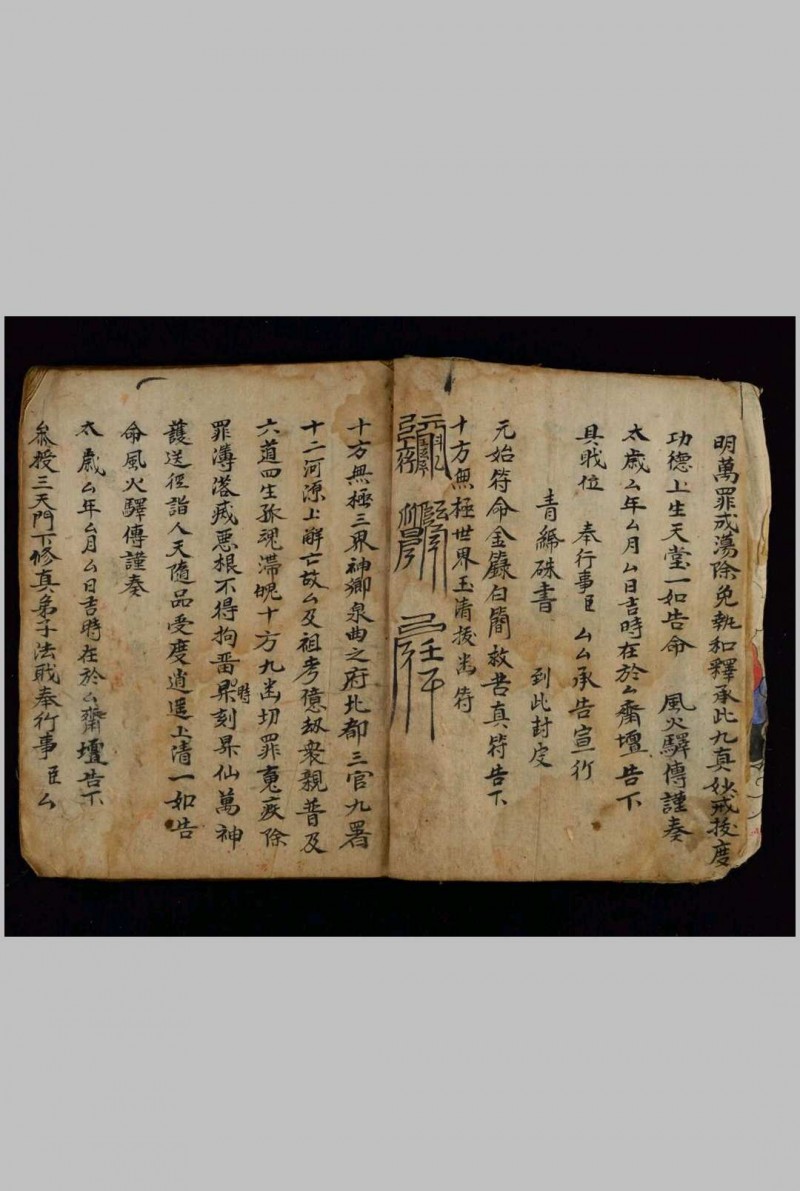 明萬罪咸蕩除免執和釋承此九真妙戒拔度
功德上生天堂一如告命　風火驛傳謹奏
太歲厶年厶月厶日吉時在於厶齋壇告下
具戝位　奉行事臣　厶厶承告宣行
青綸硃書　到此封定
元始符命金籙白簡救苦真符告下
十方無極世界玉清拔幽符
十方無極三界神鄉泉曲之府北都三官九署
十二河源上解亡故厶及祖考億劫衆親普及
六道四生孤魂滯魄十方九幽切罪冤疾除
罪簿落滅惡根不得拘留時刻昇仙萬神
護送徑詣人天隨品受度逍遥上清一如告
命風火驛傳謹奏
太歲厶年厶月厶日吉時在於厶齋壇告下
叅授三天門下修真弟子法戝奉行事臣厶